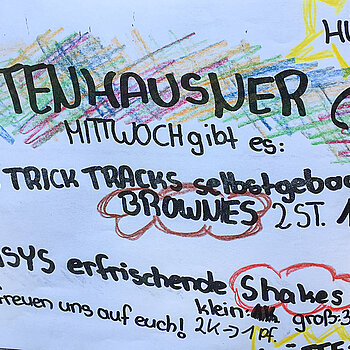 HU
TENHAUSNER
MITTWOCH gibt es:
TRICK TRACKS selbstgebac
BROWNIES 2 ST. 1
SYS erfrischende Shakes
freuen uns auf euch! klein: groß: 3
2K → 1 Pf.